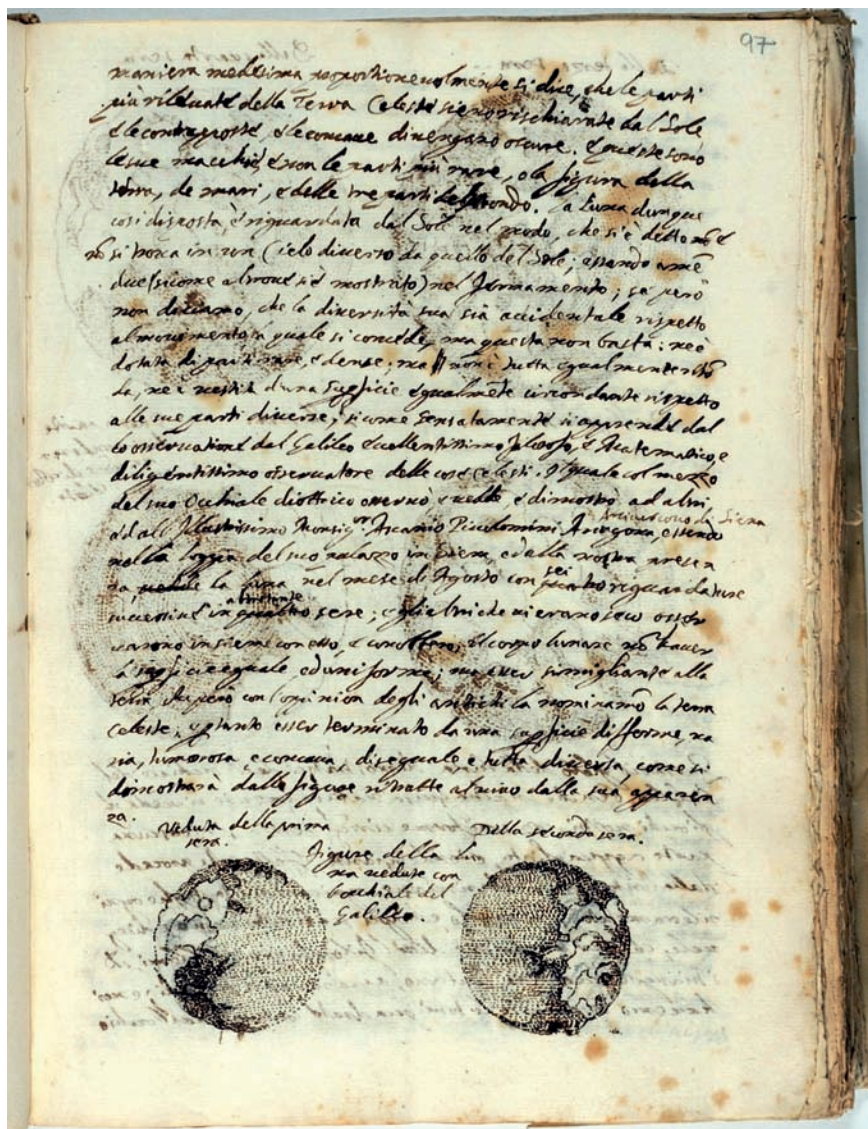 97
maniera medesima proportionevolmente si dice, che le parti
più rilevate della Terra Celeste sieno rischiarate dal Sole
e le contrapposte, e le concave divengano oscure. e queste sono
le sue macchie, e non le parti più rare, o la figura della
terra, de mari, e delle tre parti del Mondo. La Luna dunque
cosi disposta è riguardata dal Sole nel modo, che si è detto
nõ si trova in un Cielo diverso da quello del Sole; essendo amẽ
due (sicome altrove si è mostrato) nel firmamento; se però
non diciamo, che la diversità sua sia accidentale rispetto
al movimento, la quale si concede, ma questa non basta: ne è
dotata di parti rare, e dense; ma non è tutta egualmente
da, ne è vestita d'una supficie egualmẽte circondante rispetto
alle sue parti diverse; sicome sensatamente si apprende dal
lo osservatione del Galileo eccellentissimo filosofo, e Matematico, e
diligentissimo osservatore delle cose Celesti. Il quale col mezzo
del suo Occhiale diottrico osservò, e vedde e dimostrò ad altri,
ed all'Illustrissimo Monsig.or Ascanio Piccolomini Aragona, Arcivescovo di Siena essendo
nella loggia del suo palazzo in Siena, e della nostra presen
za, la Luna nel mese di Agosto con sei riguardature
successive in altrettante sere; e gli altri che vi erano seco osser
varono insieme con esso, e il corpo lunare nõ haver
la supficie eguale, ed uniforme; ma esser simigliante alla
terra, che però con l'opinion degli antichi la nominiamo la terra
Celeste; e ptanto esser terminato da una supficie difforme, va
ria, tumorosa, e concava, diseguale, e tutta diversa, come si
dimostrarà dalle figure ritratte al vivo dalla sua apparen
za.
Veduta della prima
sera.
Della seconda sera.
Figure della Lu
na vedute con
l'occhiale del
Galileo.